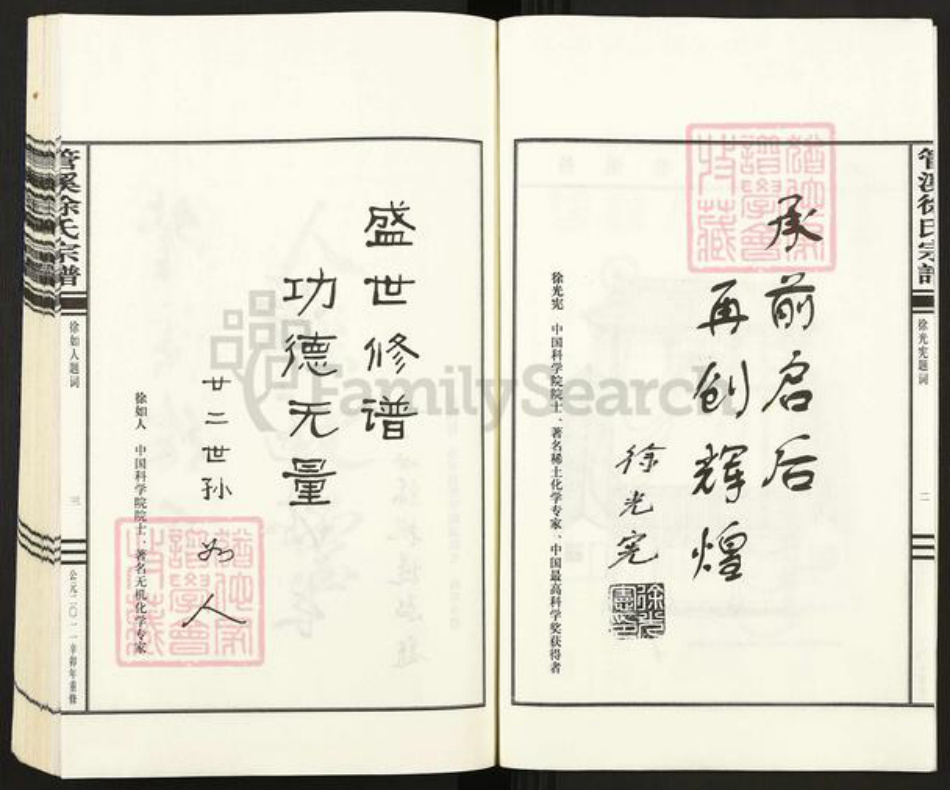 管溪徐氏宗譜
徐光宪题词
二
承前启后
再创辉煌
徐光宪
徐光憲印
徐光宪 中国科学院院士、著名稀土化学专家、中国最高科学奖获得者
猶他家譜學會收藏
管溪徐氏宗譜
徐如人题词
三
公元二〇一一辛卯年重修
盛世修谱
功德无量
廿二世孙 如人
徐如人 中国科学院院士、著名无机化学专家
猶他家譜學會收藏
FamilySearch